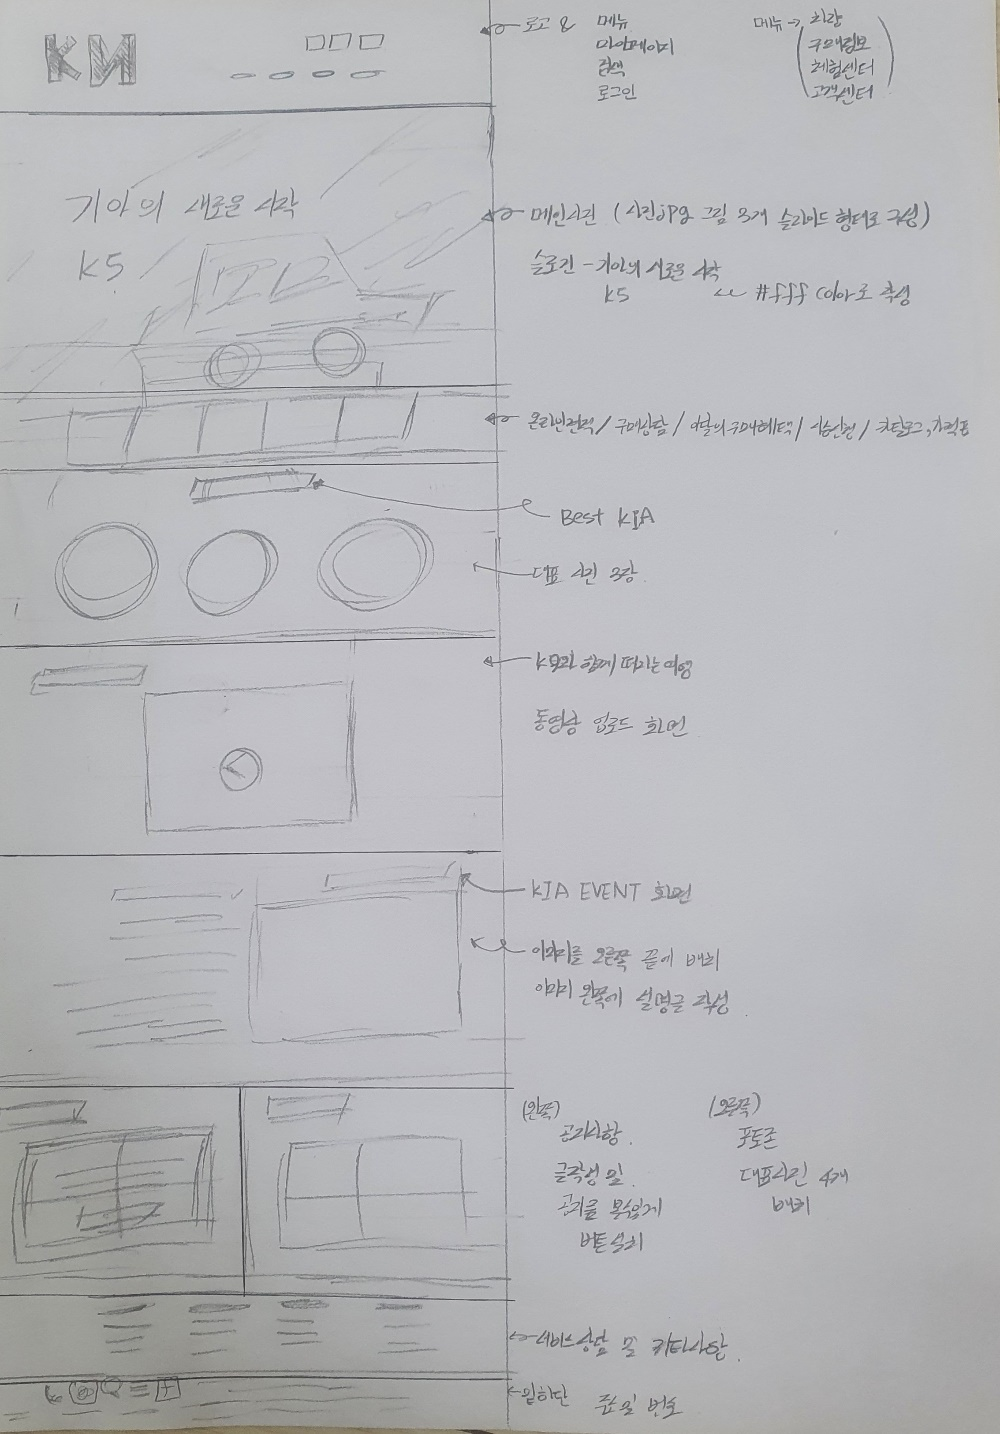 KN
로고 &
메뉴
마이페이지
검색
로그인
메뉴 → 차량
구매정보
체험센터
고객센터
기아의 새로운 시작
K5
메인사진 (사진 jpg 그림 3개 슬라이드 형태로 구성)
슬로건 - 기아의 새로운 시작
K5
#fff color로 작성
온라인견적 / 구매상담 / 이달의 구매혜택 / 시승신청 / 카탈로그, 가격표
Best KIA
대표 사진 3장
함께 떠나는 여행
동영상 업로드 화면
KIA EVENT 화면
이미지를 오른쪽 끝에 배치
이미지 왼쪽에 설명글 작성
(왼쪽)
공지사항
글작성 및
공지를 볼수있게
버튼 설치
(오른쪽)
포토존
대표사진 4개
배치
서비스상담 및 기타사안
맨하단
주소 및 번호